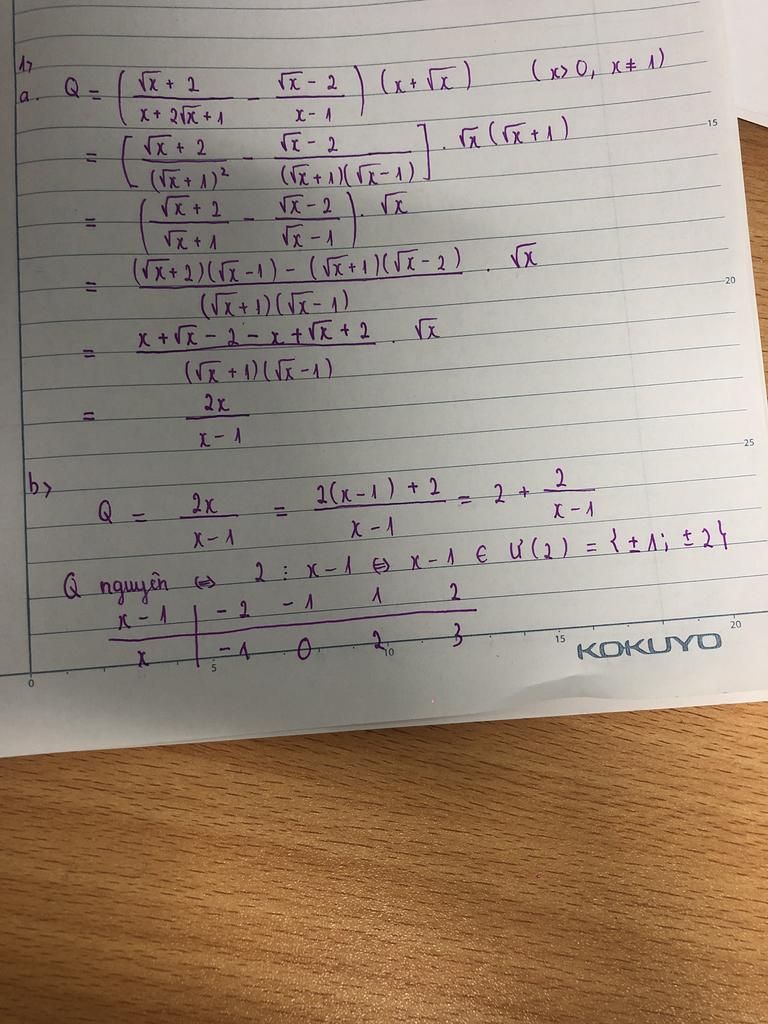 1>
a. Q = ( (√x + 2)/(x + 2√x + 1) - (√x - 2)/(x - 1) ) (x + √x) (x > 0, x ≠ 1)
= [ (√x + 2)/(√x + 1)² - (√x - 2)/((√x + 1)(√x - 1)) ] . √x (√x + 1)
= ( (√x + 2)/(√x + 1) - (√x - 2)/(√x - 1) ) . √x
= ((√x + 2)(√x - 1) - (√x + 1)(√x - 2))/((√x + 1)(√x - 1)) . √x
= (x + √x - 2 - x + √x + 2)/((√x + 1)(√x - 1)) . √x
= 2x/(x - 1)
b> Q = 2x/(x - 1) = (2(x - 1) + 2)/(x - 1) = 2 + 2/(x - 1)
Q nguyên ⇔ 2 ⋮ x - 1 ⇔ x - 1 ∈ Ư(2) = {±1; ±2}
x - 1 | -2 -1 1 2
x | -1 0 2 3
15
20
25
0 5 10 15 20
KOKUYO